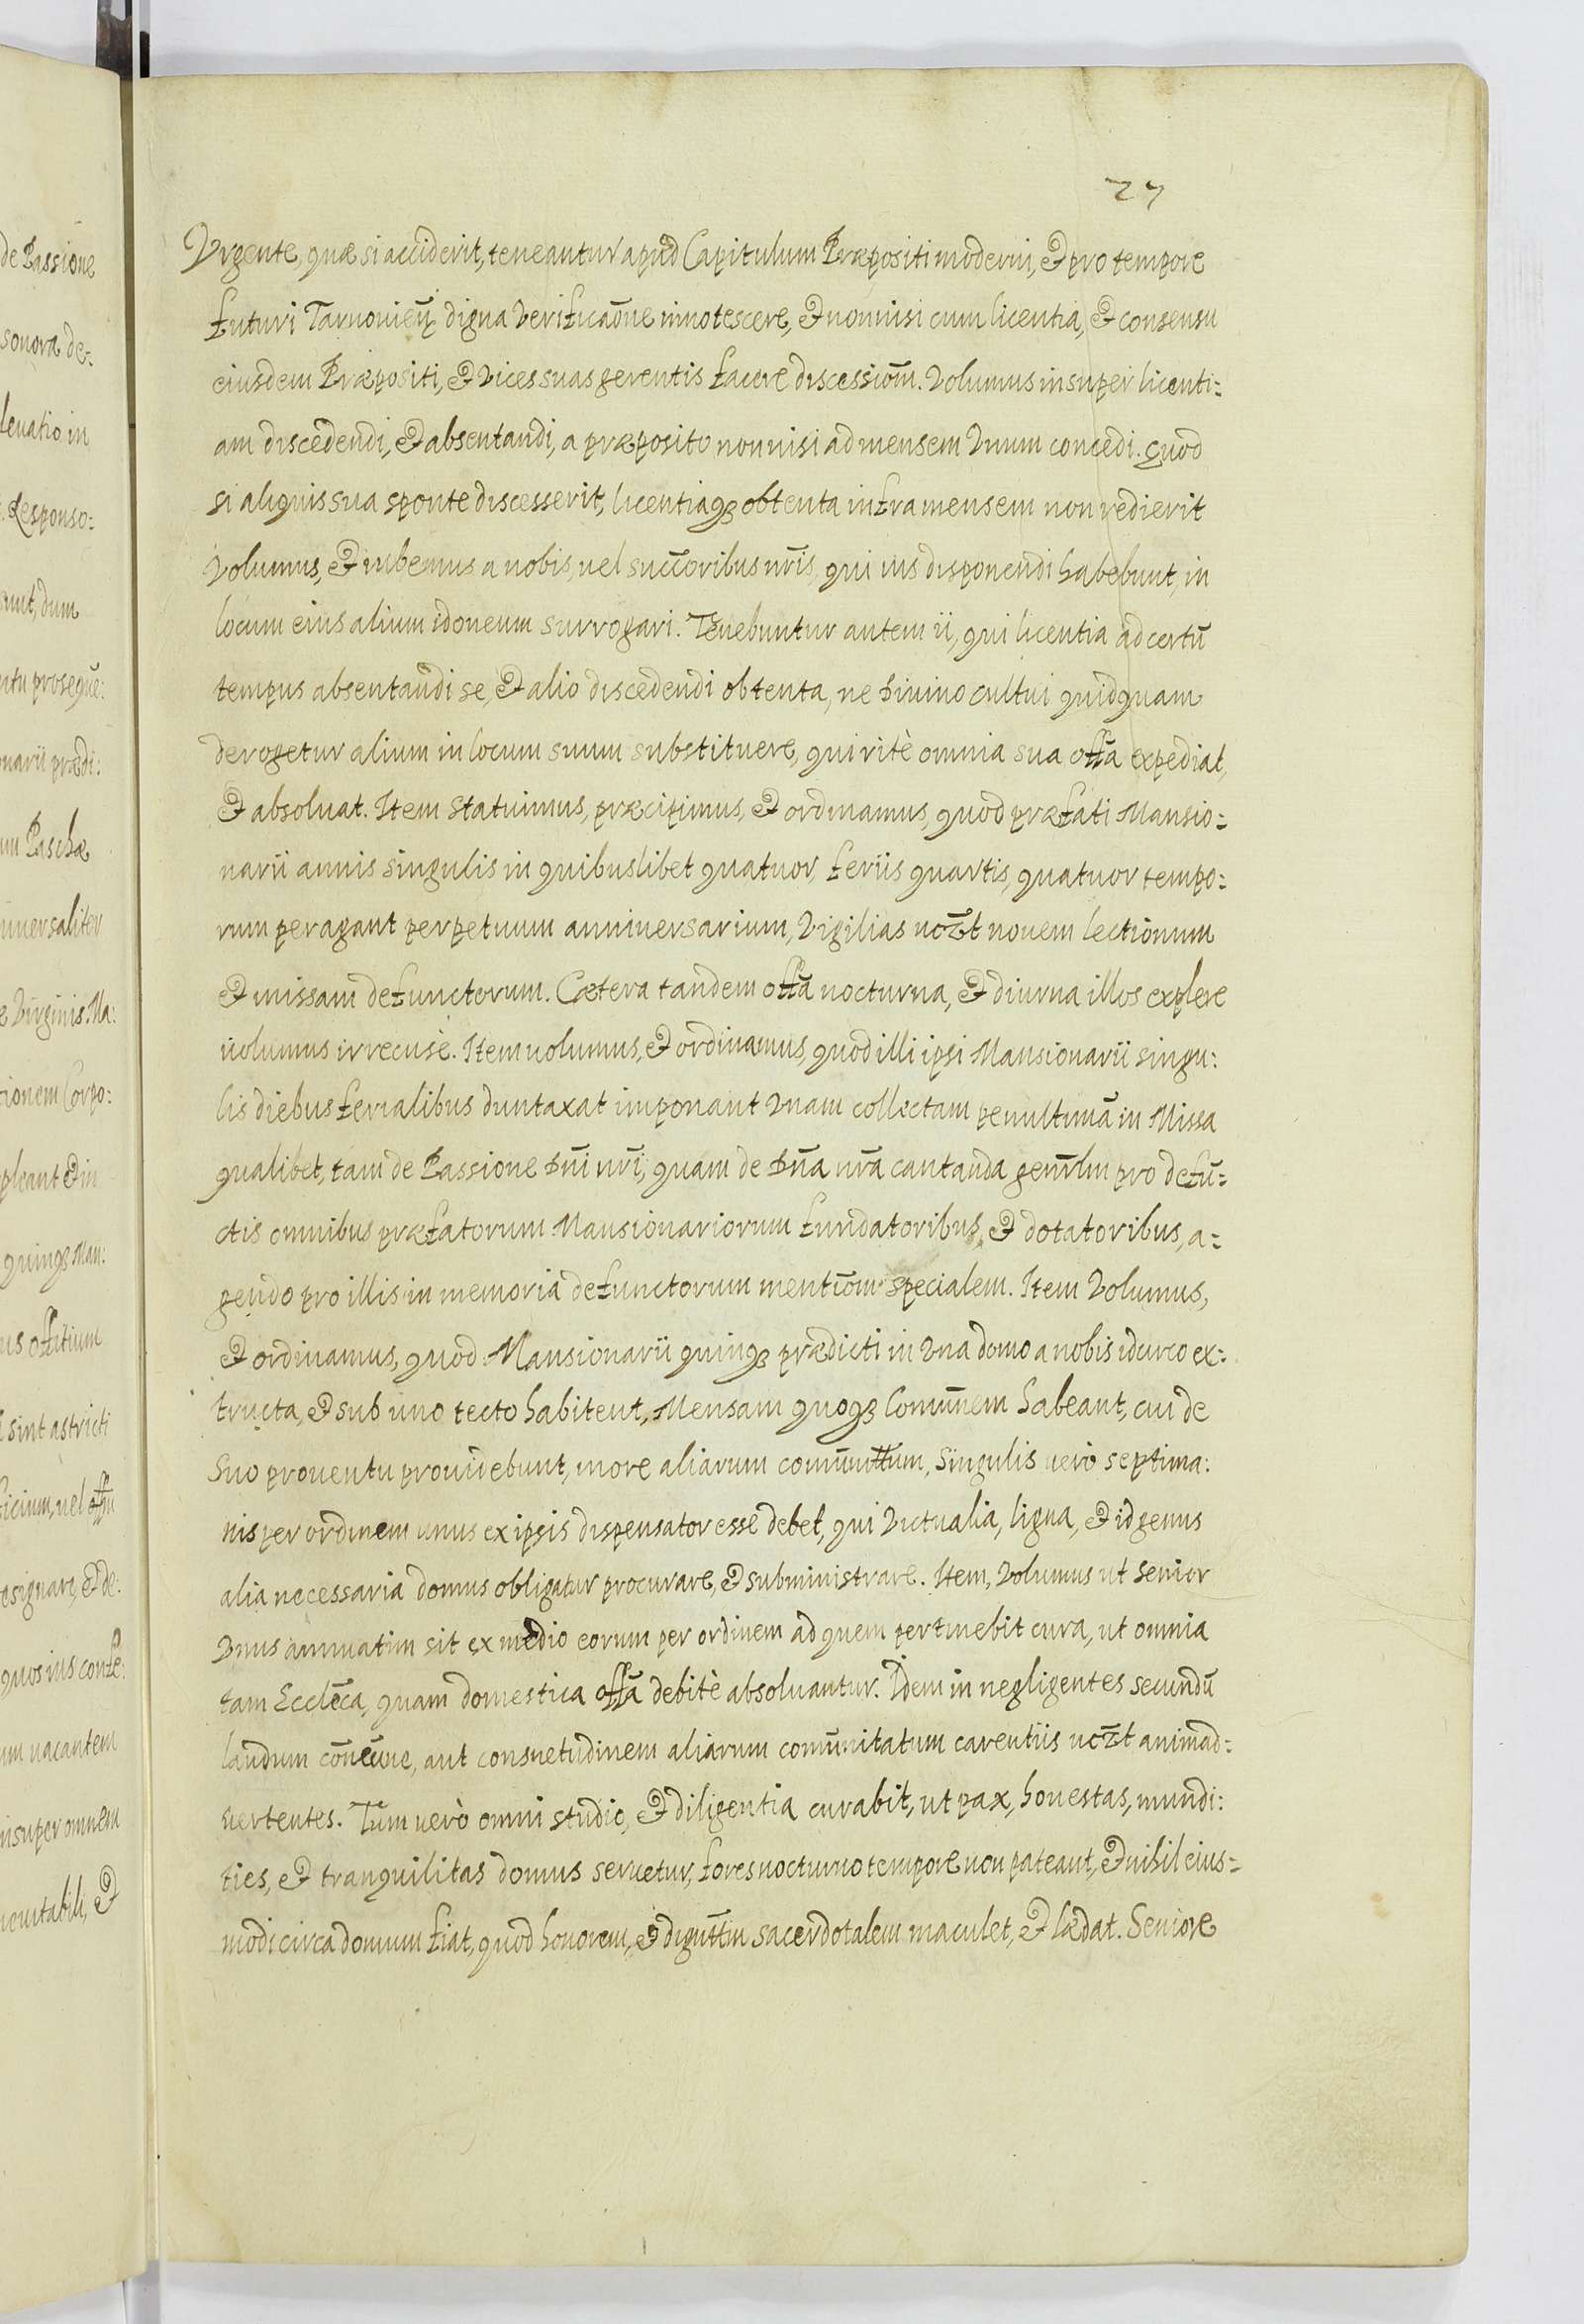 27
Vrgente, quæ si acciderit, teneantur apud Capitulum Præpositi moderni, et pro tempore
futuri Tarnovieñ digna verificaõne innotescere, et nonnisi cum licentia, et consensu
eiusdem Præpositi, et vices suas gerentis facere discessiom̃. Volumus insuper licenti=
am discedendi, et absentandi, a præposito nonnisi ad mensem Vnum concedi. Quod
si aliquis sua sponte discesserit, licentiaq; obtenta infra mensem non redierit
Volumus, et iubemus a nobis, uel succ̃oribus nr̃is, qui ius disponendi habebunt, in
locum eius alium idoneum surrogari. Tenebuntur autem ii, qui licentia ad certũ
tempus absentandi se, et alio discedendi obtenta, ne Diuino cultui quidquam
derogetur alium in locum suum substituere, qui ritè omnia sua offã expediat,
et absoluat. Item statuimus, præcipimus, et ordinamus, quod præfati Mansio=
narii annis singulis in quibuslibet quatuor, feriis quartis, quatuor tempo=
rum peragant perpetuum anniuersarium, Vigilias uc̃zt nouem lectionum
et missam defunctorum. Cætera tandem offã nocturna, et diurna illos explere
uolumus irrecusè. Item uolumus, et ordinamus, quod illi ipsi Mansionarii singu:
lis diebus ferialibus duntaxat imponant Vnam collectam penultimã in Missa
qualibet, tam de Passione Dñi nr̃i, quam de Dña nr̃a cantanda genr̃lm pro defũ=
ctis omnibus præfatorum Mansionariorum fundatoribus, et dotatoribus, a=
gendo pro illis in memoria defunctorum mentiom̃ specialem. Item Volumus,
et ordinamus, quod Mansionarii quinq; prædicti in Vna domo a nobis idcirco ex:
tructa, et sub uno tecto habitent, Mensam quoq; Comũnem habeant, cui de
Suo prouentu prouidebunt, more aliarum comũnttum, Singulis uerò septima:
nis per ordinem unus ex ipsis dispensator esse debet, qui Victualia, ligna, et id genus
alia necessaria domus obligatur procurare, et subministrare. Item, Volumus ut Senior
Vnus annuatim sit ex medio eorum per ordinem ad quem pertinebit cura, ut omnia
tam Ecclẽca, quam domestica offã debitè absoluantur. Idem in negligentes secundũ
laudum cõmune, aut consuetudinem aliarum comũnitatum carentiis uc̃zt animad=
uertentes. Tum uerò omni studio, et diligentia curabit, ut pax, honestas, mundi:
ties, et tranquilitas domus seruetur, fores nocturno tempore non pateant, et nihil eius=
modi circa domum fiat, quod honorem, et dignttm̃ sacerdotalem maculet, et lædat. Seniore